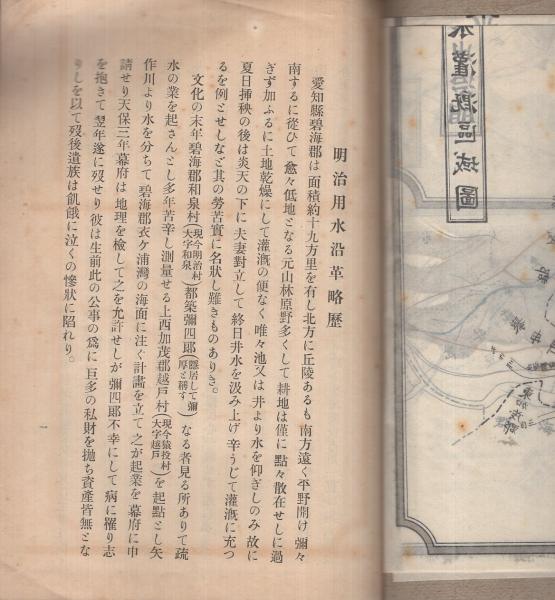 明治用水沿革略歴
愛知縣碧海郡は面積約十九方里を有し北方に丘陵あるも南方遠く平野開け彌々
南するに從ひて愈々低地となる元山林原野多くして耕地は僅に點々散在せしに過
ぎず加ふるに土地乾燥にして灌漑の便なく唯々池又は井より水を仰ぎしのみ故に
夏日挿秧の後は炎天の下に夫妻對立して終日井水を汲み上げ辛うじて灌漑に充つ
るを例とせしなど其の勞苦實に名狀し難きものありき。
文化の末年碧海郡和泉村(現今明治村大字和泉)都築彌四郎(隱居して彌厚と稱す)なる者見る所ありて疏
水の業を起さんとし多年苦辛し測量せる上西加茂郡越戸村(現今猿投村大字越戸)を起點とし矢
作川より水を分ちて碧海郡衣ケ浦灣の海面に注ぐ計畫を立て之が起業を幕府に申
請せり天保三年幕府は地理を檢して之を允許せしが彌四郎不幸にして病に罹り志
を抱きて翌年遂に歿せり彼は生前此の公事の爲に巨多の私財を抛ち資産皆無とな
りしを以て歿後遺族は飢餓に泣くの慘狀に陷れり。
灌漑區域圖